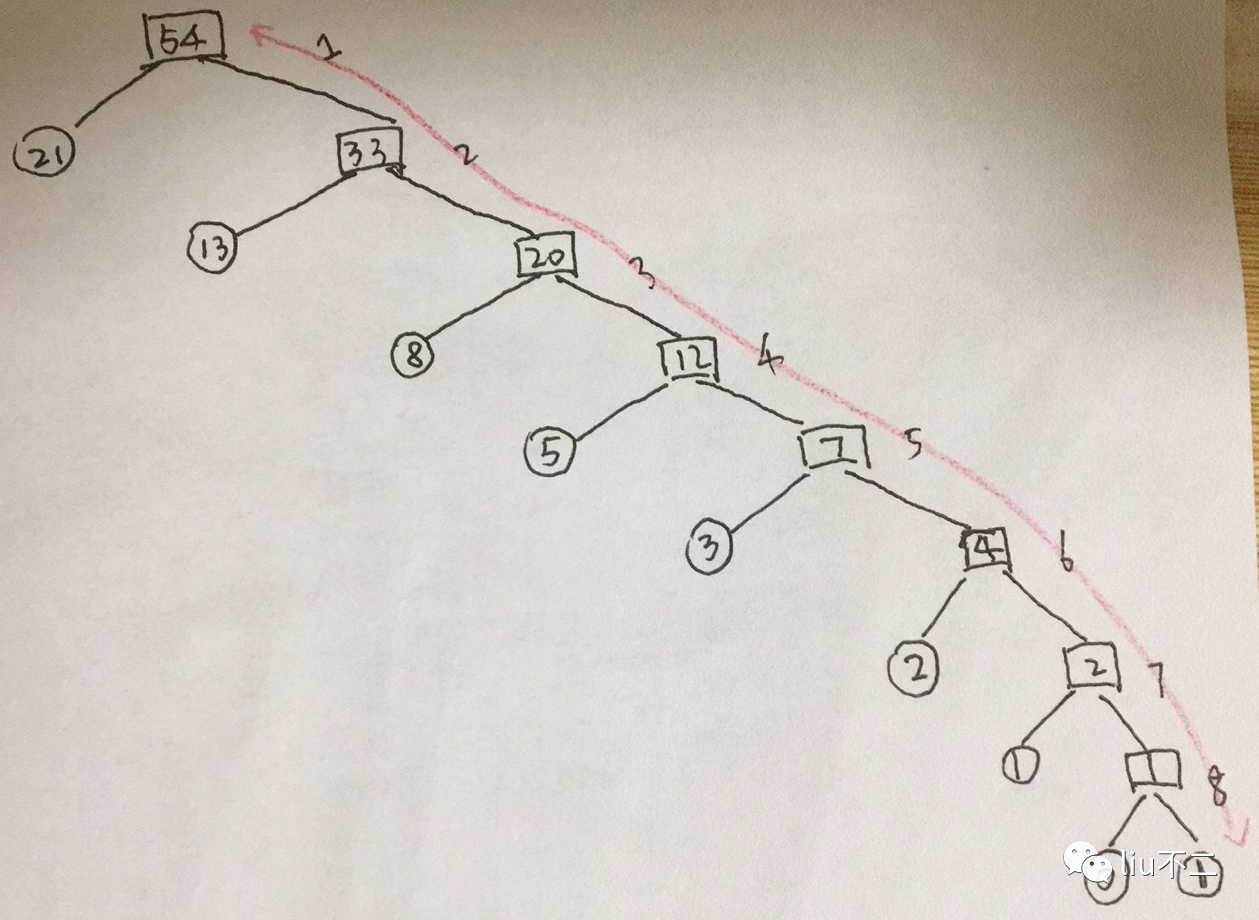 54
1
21
33
2
13
20
3
8
12
4
5
7
5
3
4
6
2
2
7
1
1
8
1
liu不二